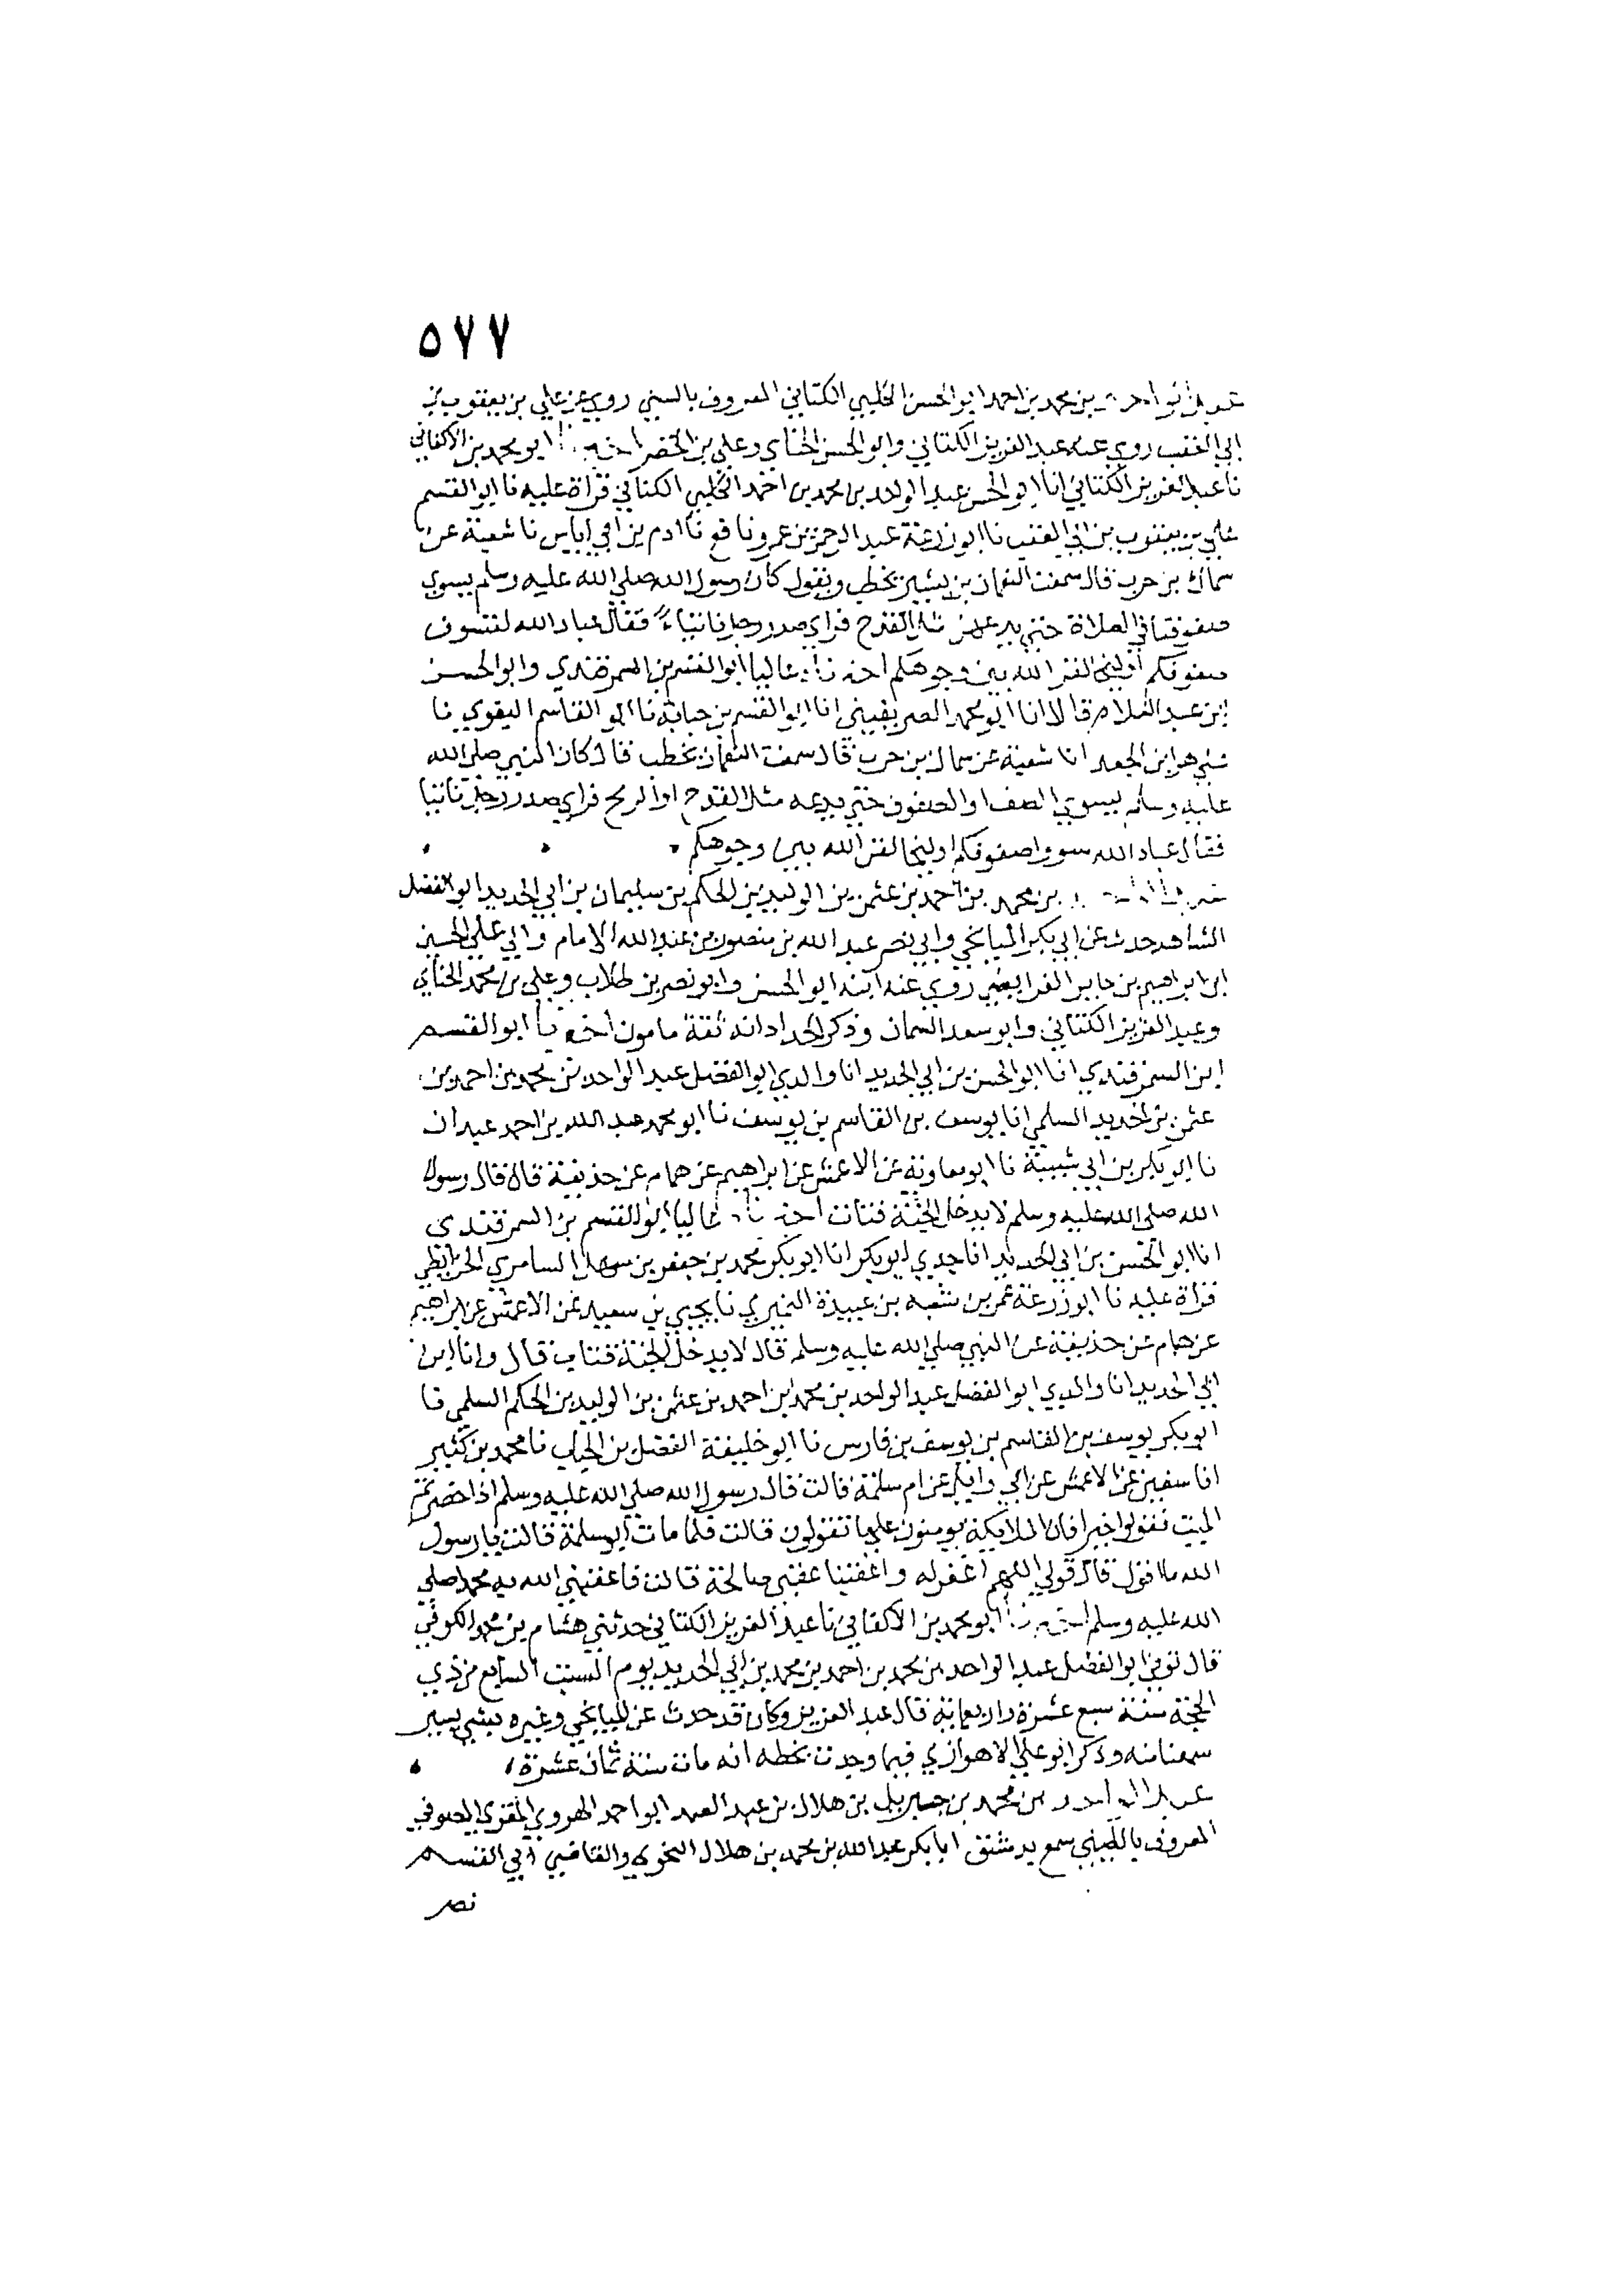 ٥٧٧
عبد الواحد بن محمد بن احمد ابو الحسن الكتاني المعروف بالسني روي عن علي بن يعقوب بن
ابي العقب روي عنه عبد العزيز الكتاني وابو الحسن الحناي وعلي بن الخضر اخبرنا ابو محمد بن الاكفاني
نا عبد العزيز الكتاني انا ابو الحسن عبد الواحد بن محمد بن احمد الكتاني قراة عليه نا ابو القسم
علي بن يعقوب بن ابي العقب نا ابو زرعة عبد الرحمن بن عمرو نا ادم بن ابي اياس نا شعبة عن
سماك بن حرب قال سمعت النعمان بن بشير يخطب ويقول كان رسول الله صلي الله عليه وسلم يسوي
صفوفنا في الصلاة حتي مثل القدح فراي صدر رجل ناتيا فقال عباد الله لتسون
صفوفكم او ليخالفن الله بين وجوهكم اخبرناه عاليا ابو القسم بن السمرقندي وابو الحسن
ابن عبد السلام قالا انا ابو محمد الصريفيني انا ابو القسم بن حبابة نا ابو القاسم البغوي نا
علي هو ابن الجعد انا شعبة عن سماك بن حرب قال سمعت النعمان يخطب قال كان النبي صلي الله
عليه وسلم يسوي الصف او الصفوف حتي يدعه مثل القدح او الرمح فراي صدر رجل ناتيا
فقال عباد الله سووا صفوفكم او ليخالفن الله بين وجوهكم
عبد الواحد بن محمد بن احمد بن عثمن بن الوليد بن الحكم بن سليمان بن ابي الحديد ابو الفضل
الشاهد حدث عن ابي بكر الميانجي وابي نصر عبد الله بن منصور بن عبد الله الامام وابي علي الحسن
ابن ابراهيم بن جابر الفرايضي روي عنه ابنه ابو الحسن وابو نصر بن طلاب وعلي بن محمد الحناي
وعبد العزيز الكتاني وابو سعد السمان وذكر الحداد انه ثقة مامون اخبرنا ابو القسم
ابن السمرقندي انا ابو الحسن بن ابي الحديد انا والدي ابو الفضل عبد الواحد بن محمد بن احمد بن
عثمن بن الحديد السلمي انا يوسف بن القاسم بن يوسف نا ابو محمد عبد الله بن احمد عبدان
نا ابو بكر بن ابي شيبة نا ابو معاوية عن الاعمش عن ابراهيم عن همام عن حذيفة قال قال رسول
الله صلي الله عليه وسلم لا يدخل الجنة قتات اخبرناه عاليا ابو القسم بن السمرقندي
انا ابو الحسن بن ابي الحديد انا جدي ابو بكر انا ابو بكر محمد بن جعفر بن سهل السامري الخرايطي
قراة عليه نا ابو زرعة عمر بن شبه بن عبيدة النميري نا يحيي بن سعيد عن الاعمش عن ابراهيم
عن همام عن حذيفة عن النبي صلي الله عليه وسلم قال لا يدخل الجنة قتات قال وانا ابن
ابي الحديد انا والدي ابو الفضل عبد الواحد بن محمد بن احمد بن عثمن بن الوليد بن الحكم السلمي نا
ابو بكر يوسف بن القاسم بن يوسف بن فارس نا ابو خليفة الفضل بن الحباب نا محمد بن كثير
انا سفين عن الاعمش عن ابي وايل عن ام سلمة قالت قال رسول الله صلي الله عليه وسلم اذا حضرتم
الميت فقولوا خيرا فان الملايكة يومنون علي ما تقولون قالت فلما مات ابو سلمة قالت يا رسول
الله ما اقول قال قولي اللهم اغفر له واعقبنا عقبي صالحة قالت فاعقبني الله به محمدا صلي
الله عليه وسلم اخبرنا ابو محمد بن الاكفاني نا عبد العزيز الكتاني حدثني هشام بن محمد الكوفي
قال توفي ابو الفضل عبد الواحد بن محمد بن احمد بن محمد بن ابي الحديد يوم السبت السابع من ذي
الحجة سنة سبع عشرة واربعماية قال عبد العزيز وكان قد حدث عن الميانجي وغيره بشي يسير
سمعنا منه وذكر ابو علي الاهوازي فيما وجدت بخطه انه مات سنة ثمان عشرة
عبد الواحد بن محمد بن جبريل بن هلال بن عبد الصمد ابو احمد الهروي المقري الصوفي
المعروف سمع بدمشق ابا بكر عبد الله بن محمد بن هلال النحوي والقاضي ابي القسم
نصر